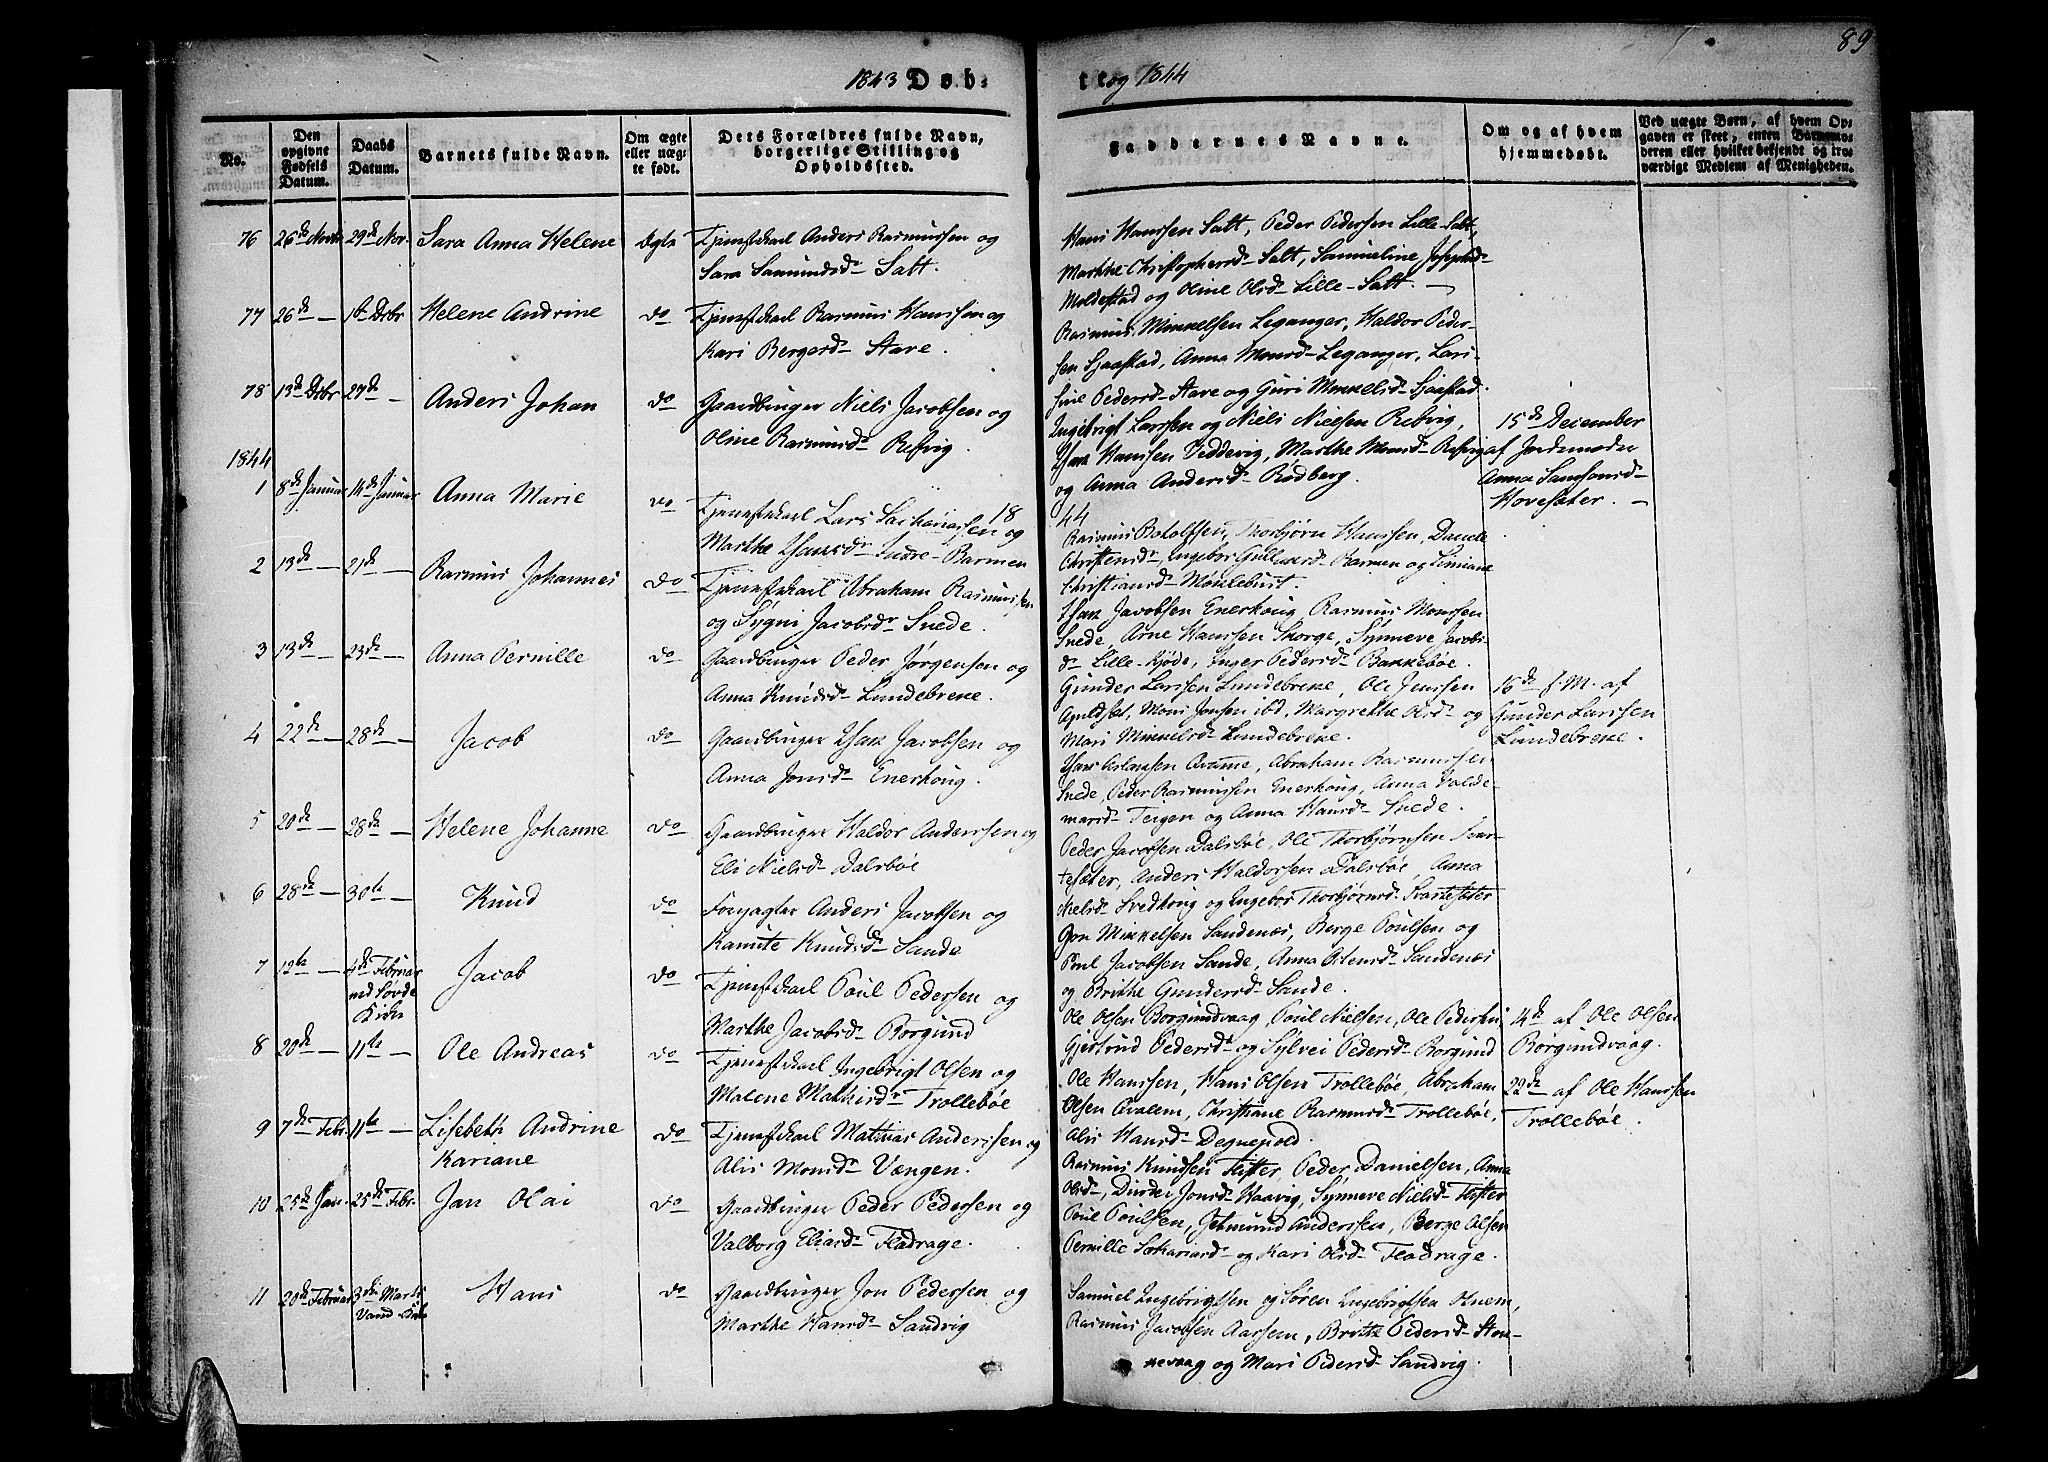 89
1843 Døb-
te og 1844
No.
Den opgivne Fødsels Datum.
Daabs Datum.
Barnets fulde Navn.
Om ægte eller uægte født.
Dets Forældres fulde Navn, borgerlige Stilling og Opholdssted.
Faddernes Navne.
Om og af hvem hjemmedøbt.
Ved uægte Børn, af hvem Opgaven er skeet, enten Barnemoderen eller hvilket bekjendt og troværdigt Medlem af Menigheden.
76 26de Novbr 29de Nov. Sara Anna Helene Ægte Tjenestkarl Anders Rasmussen og
Sara Samundsdr Salt.
Hans Hanssen Salt, Peder Pedersen Lille-Salt,
Marthe Christophersdr Salt, Samueline Josephsdr
Moldestad og Oline Olsdr Lille-Salt.
77 26de — 1ste Dcbr Helene Andrine do Tjenestkarl Rasmus Hanssen og
Kari Bergesdr Stave.
Rasmus Mikkelsen Leganger, Haldor Peder-
sen Sjaastad, Anna Monsdr Leganger, Lari-
sine Pedersdr Stave og Guri Mikkelsdr Sjaastad.
78 13de Dcbr 27de — Anders Johan do Gaardbruger Niels Jacobsen og
Oline Rasmusdr Refvig.
Ingebrigt Larssen og Niels Nielsen Refvig,
Isak Hanssen Veddevig, Marthe Monsdr Refvig
og Anna Andersdr Rødberg.
15de December
af Jordemoder
Anna Samsonsdr
Hovesæter. —
1844
18
44
1 8de Januar 14de Januar Anna Marie do Tjenestkarl Lars Sachariassen og
Marthe Isaksdr Indre-Barmen
Rasmus Botolfsen, Thorbjørn Hanssen,
Christensdr, Ingebor Gullaksdr Barmen og
Christiansdr Mökleburst.
2 13de — 21de — Rasmus Johannes do Tjenestkarl Abraham Rasmussen
og Sygni Jacobsdr Snede.
Isak Jacobsen Enerhoug, Rasmus Monssen
Snede, Arne Hanssen Skorge, Synneve Jacobs-
dr Lille-Kjøde, Inger Pedersdr Bakkebøe.
3 13de — 23de — Anna Pernille do Gaardbruger Peder Jørgensen og
Anna Knudsdr Lundebreke.
Gunder Larssen Lundebreke, Ole Jenssen
Apaldset, Mons Jonsen ibd, Margrethe Olsdr og
Mari Mikkelsdr Lundebreke.
16de f. M. af
Gunder Larssen
Lundebreke.
4 22de — 28de — Jacob do Gaardbruger Isak Jacobsen og
Anna Jonsdr Enerhoug.
Isak Aslaksen Qvamme, Abraham Rasmussen
Snede, Peder Rasmussen Enerhoug, Anna Valde-
marsdr Teigen og Anna Hansdr Snede.
5 20de — 28de — Helene Johanne do Gaardbruger Haldor Anderssen og
Eli Nielsdr Dalsbøe
Peder Jacobsen Dalsbøe, Ole Thorbjørnsen Svar-
tesæter, Anders Haldorsen Dalsbøe, Anna
Nielsdr Svedkoug og Ingebor Thorbjørnsdr Svartesæter
6 28de — 30te — Knud do Forpagter Anders Jacobsen og
Kamite Knudsdr Sande
Gon Mikkelsen Sandenæs, Berge Poulsen og
Poul Jacobsen Sande, Anna Sandenæs
og Brithe Gundersdr Sande.
7 12te — 4de Februar Jacob do Tjenestkarl Poul Pedersen og
ved Søvde
Kirke
Marthe Jacobsdr Borgund
Ole Olsen Borgundvaag, Poul Nielsen, Ole Pedersen,
Gjertrud Pedersdr og Sylvei Pedersdr Borgund
14de af Ole Olsen
Borgundvaag.
8 20de — 11te — Ole Andreas do Tjenestkarl Ingebrigt Olsen og
Malene Mathisdr Trollebøe
Ole Hanssen, Hans Olsen Trollebøe, Abraham
Olsen Qvalem, Christiane Rasmusdr Trollebøe,
Alis Hansdr Degnepold.
22de af Ole Hanssen
Trollebøe.
9 7de Febr. 11te — Lisebeth Andrine do Tjenestkarl Mathias Anderssen og
Kariane
Alis Monsdr Vængen.
Rasmus Knudsen Flister, Peder Danielsen, Anna
Olsdr, Dorder Jonsdr Haavig, Synneve Nielsdr Flister
10 25de Jan. 25de Febr. Jan Olai do Gaardbruger Peder Pedersen og
Valborg Eliasdr Fladrage.
Poul Poulsen, Jetmund Anderssen, Berge Olsen
Pernille Sakariasdr og Kari Olsdr Fladrage.
11 20de Februar 3die Marts Hans do Gaardbruger Jon Pedersen og
Vand Kirke
Marthe Hansdr Sandvig
Samuel Ingebrigtsen og Søren Ingebrigtsen Hnem,
Rasmus Jacobsen Aarsem, Brithe Pedersdr Sten-
nevaag og Mari Pedersdr Sandvig.